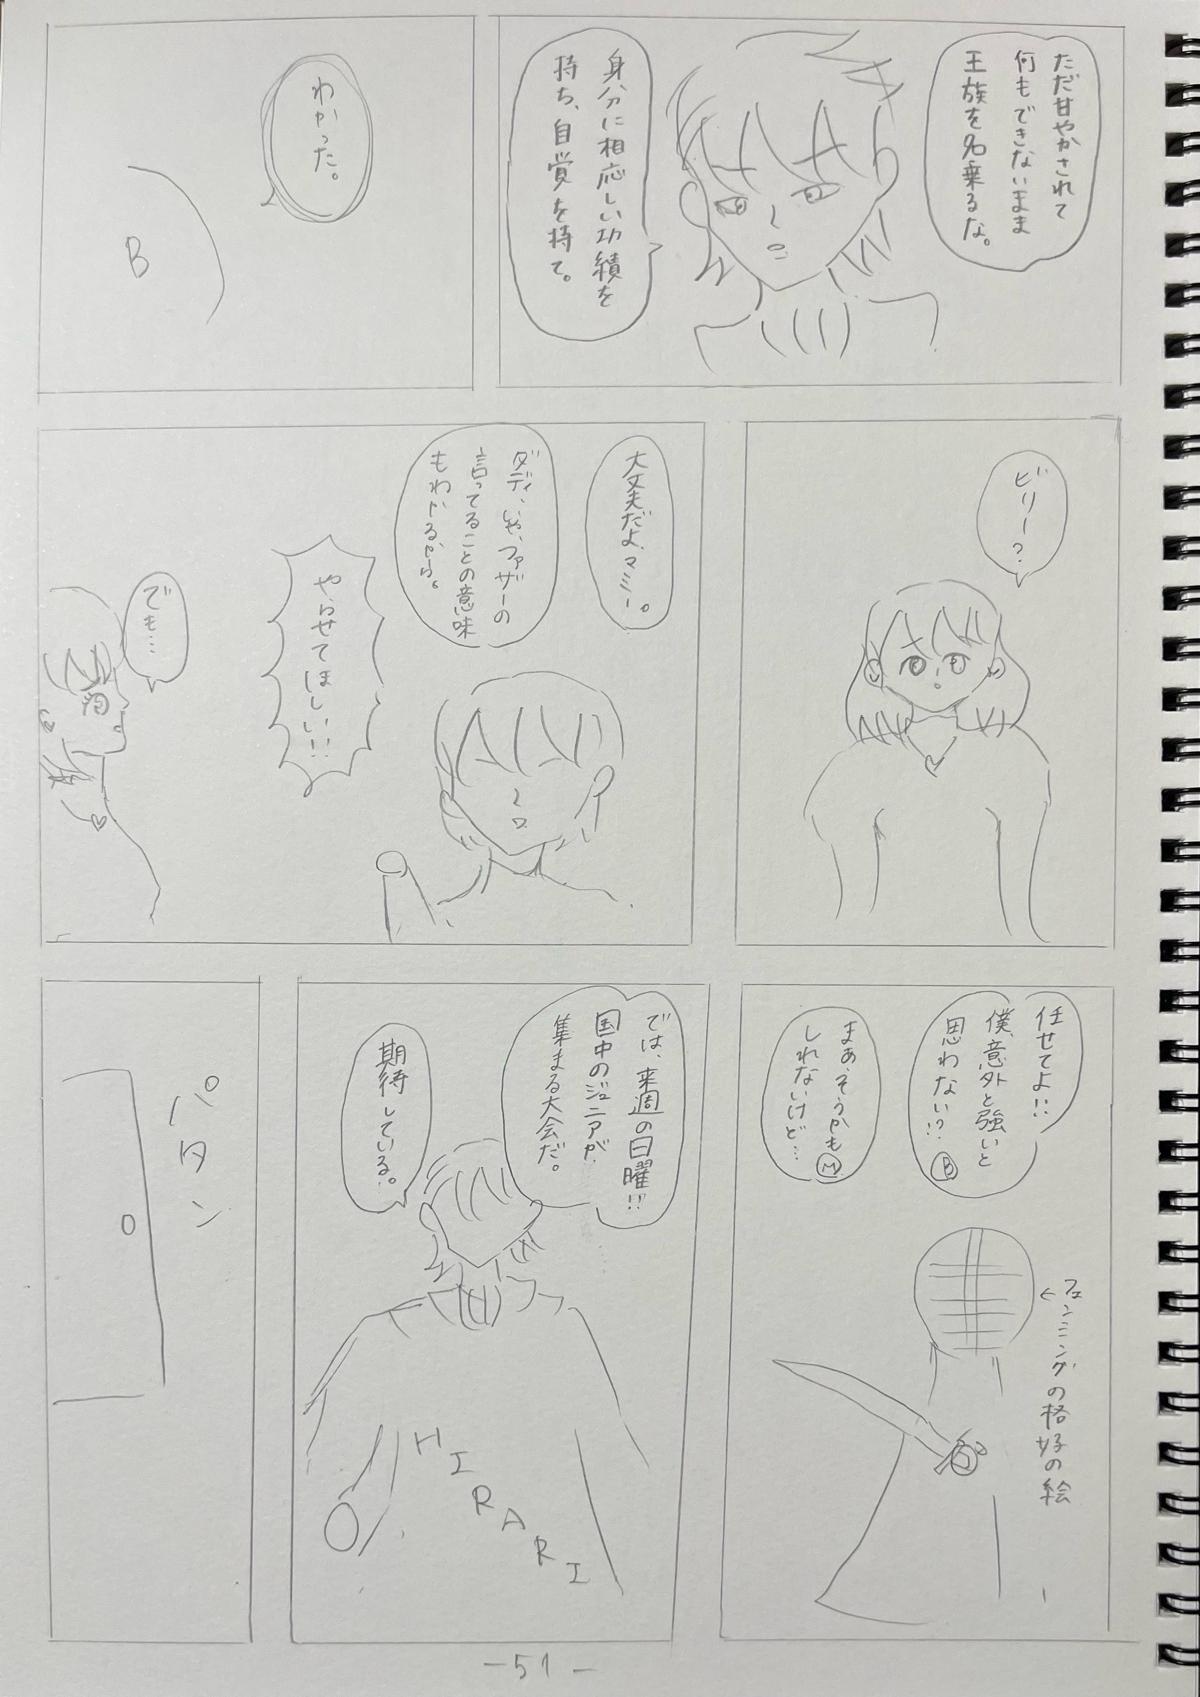 ただ甘やかされて
何もできないまま
王族を名乗るな。
身分に相応しい功績を
持ち、自覚を持て。
わかった。
B
ビリー?
大丈夫だよ、マミー。
ダディ、いや、ファザーの
言ってることの意味
もわかるから。
やらせてほしい!!
でも…
任せてよ!!
僕、意外と強いと
思わない!? Ⓑ
まあ、そうかも Ⓜ
しれないけど…
←フェンシングの格好の絵
では、来週の日曜!!
国中のジュニアが
集まる大会だ。
期待している。
HIRARI
パタン
-51-